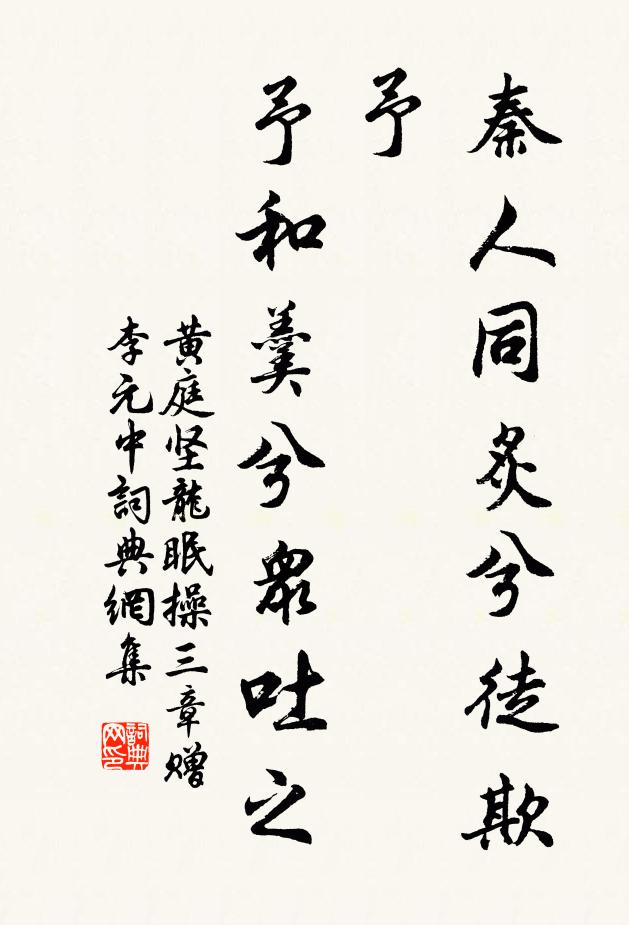 秦人同炙兮徒欺
予
予和羹兮衆吐之
黄庭坚龍眠操三章赠
李元中詞典網集
詞典网印